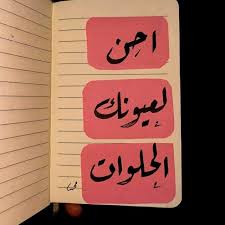 احِن
لعيونك
الحلوات